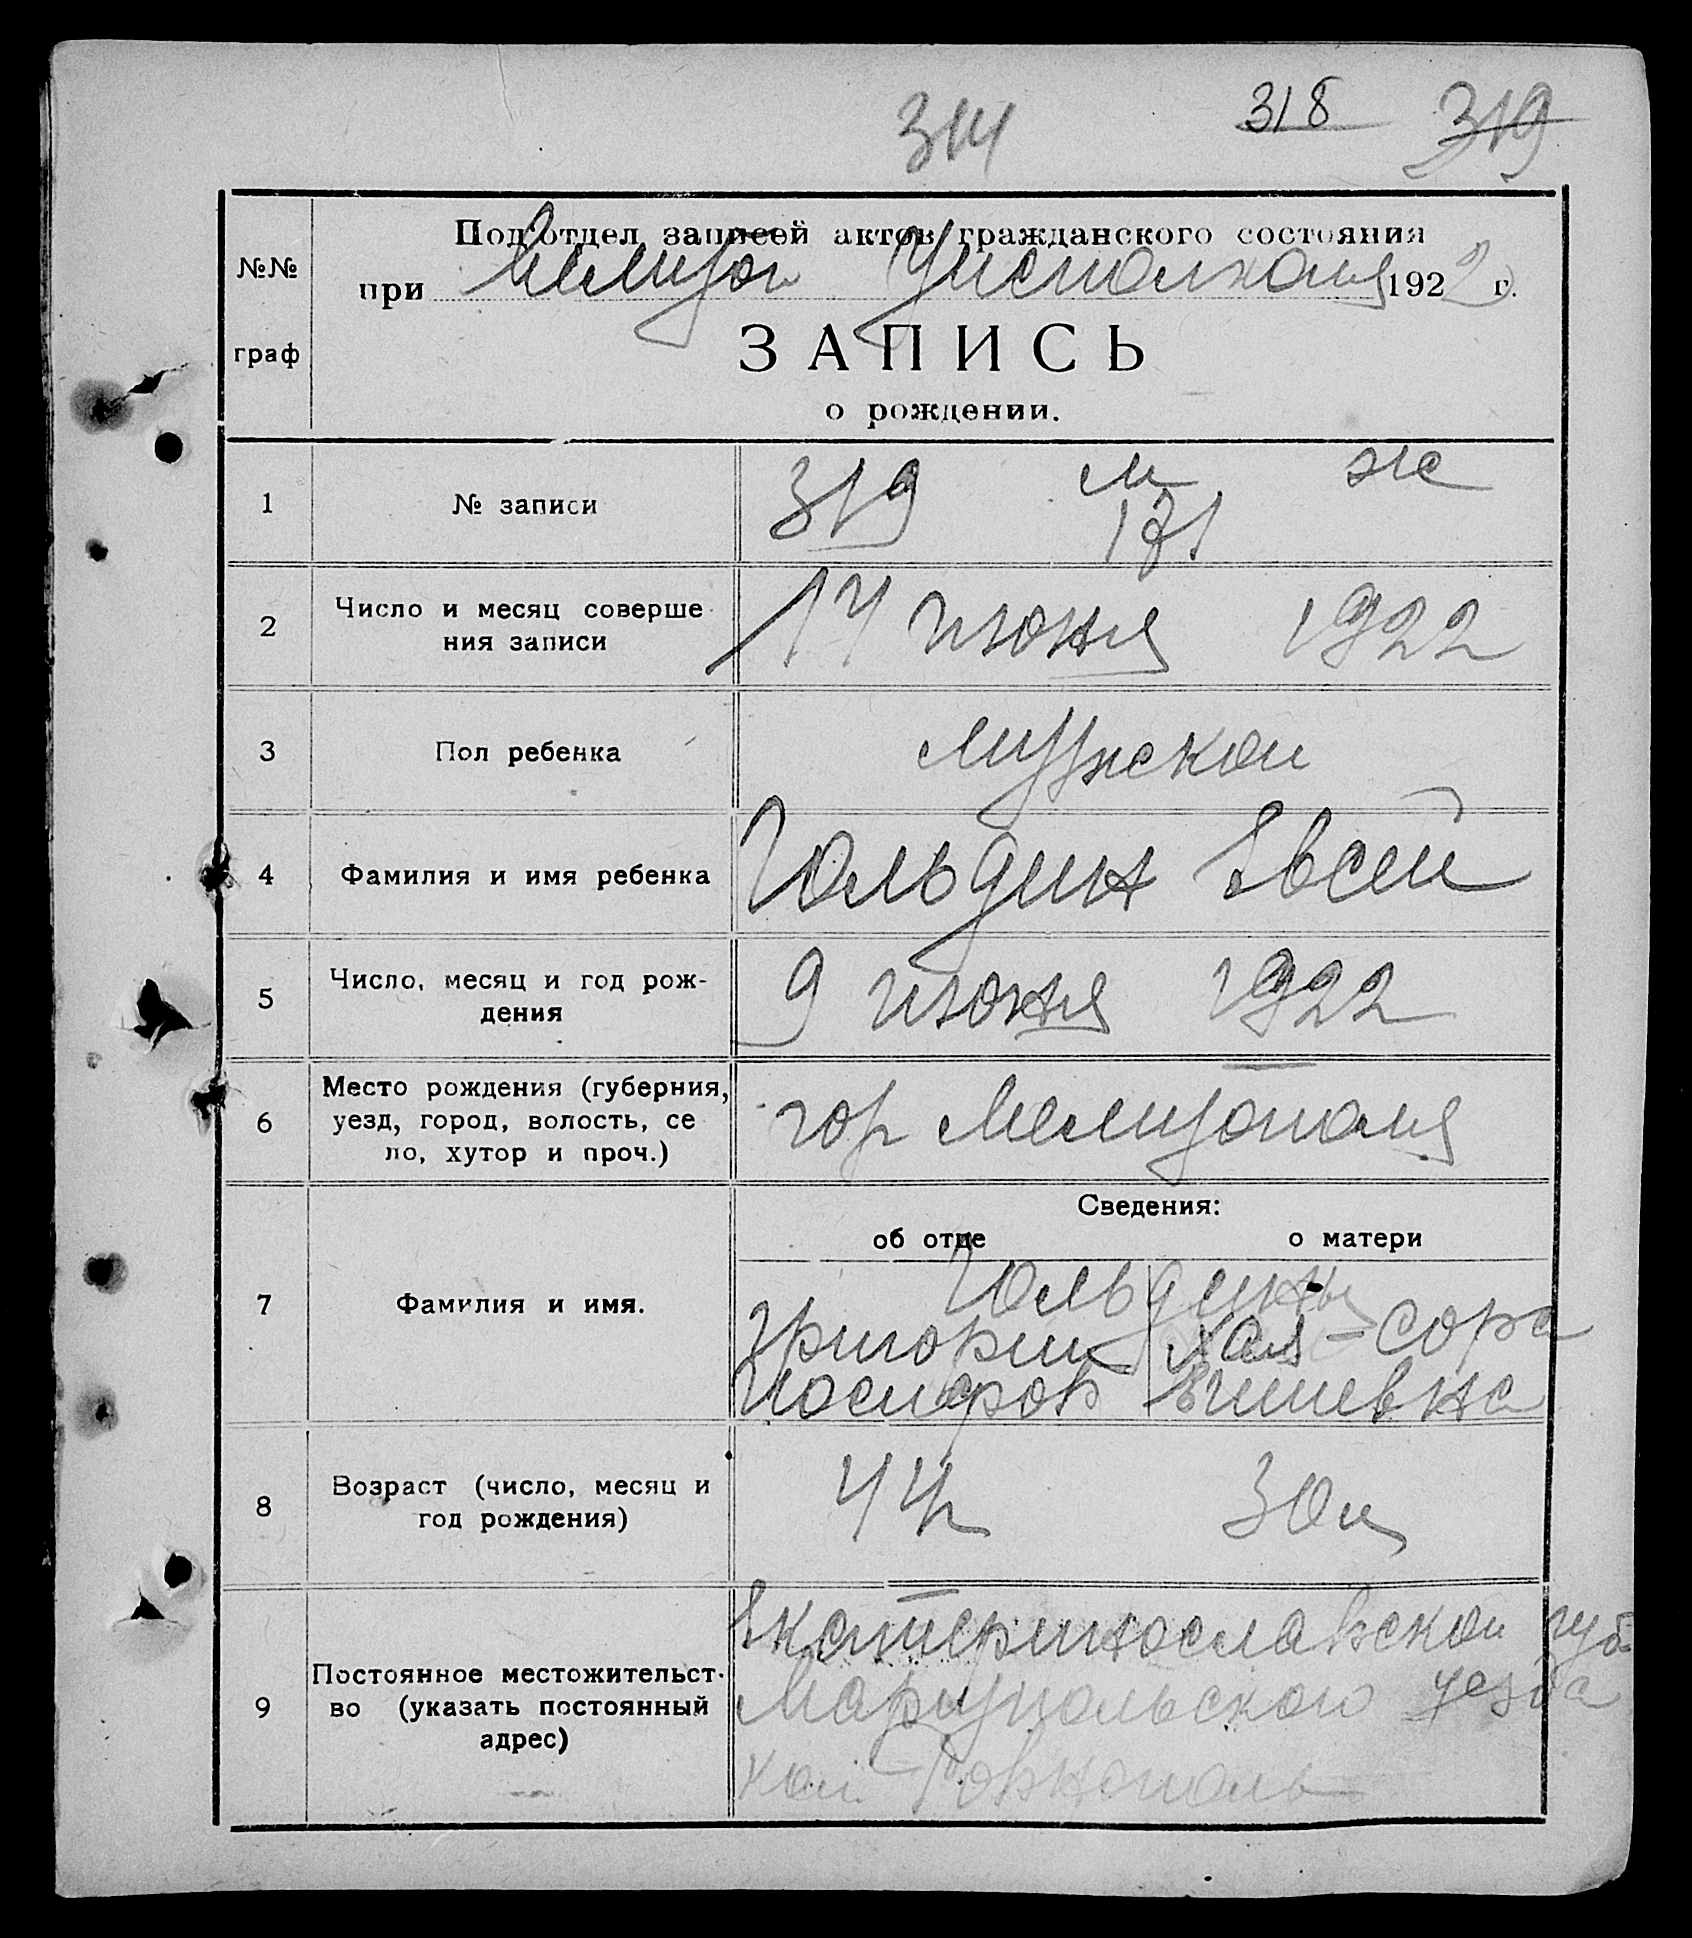 314 318 319
№№ граф
Подотдел записей актов гражданского состояния
при Мелитоп Уисполкома 1922 г.
ЗАПИСЬ
о рождении.
1 № записи 319 м ж
171
2 Число и месяц соверше
ния записи 14 июня 1922
3 Пол ребенка мужской
4 Фамилия и имя ребенка Гольдин Евсей
5 Число, месяц и год рож-
дения 9 июня 1922
6 Место рождения (губерния,
уезд, город, волость, се
ло, хутор и проч.) гор Мелитополя
Сведения:
об отце о матери
7 Фамилия и имя. Гольдины
Григорий Хая-Сора
Иосифов
8 Возраст (число, месяц и
год рождения) 44 30
9 Постоянное местожительст-
во (указать постоянный
адрес) Екатеринославской губ
Мариупольского уезда
кол. Ровнополь